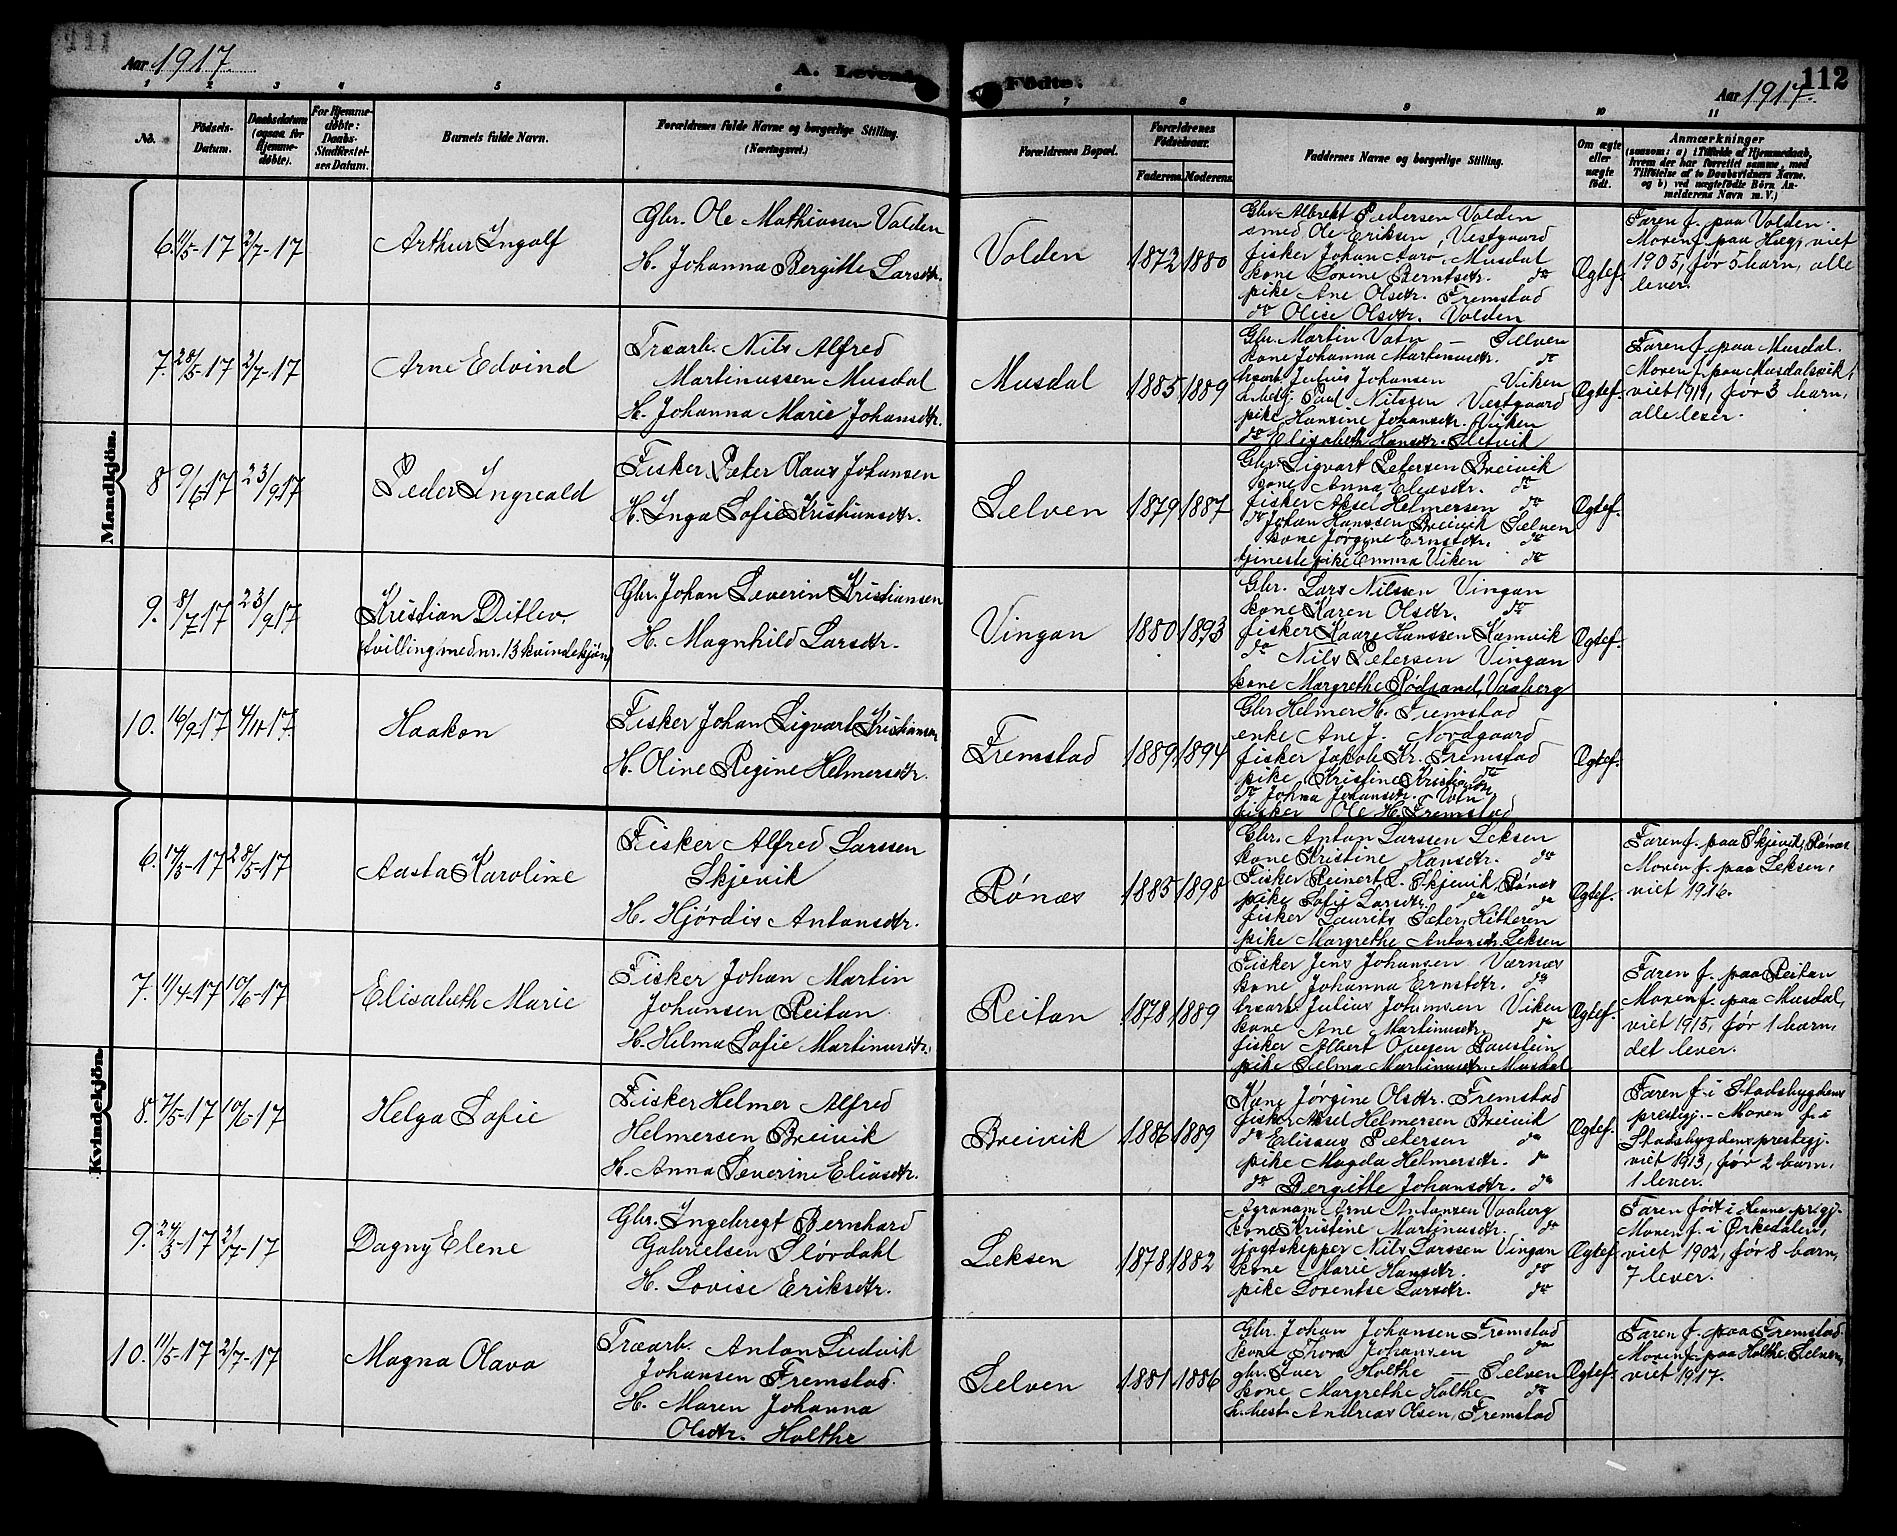 Aar 1917
A. Levende
Födte.
Aar 1917.
112
1 2 3 4 5 6 7 8 9 10 11
No.
Födsels-
Datum.
Daabsdatum
(ogsaa for
Hjemme-
döbte).
For Hjemme-
döbte:
Daabs-
Stadfæstel-
ses Datum.
Barnets fulde Navn.
Forældrenes fulde Navne og borgerlige Stilling.
(Næringsvei.)
Forældrenes Bopæl.
Forældrenes
Födselsaar.
Faderens. Moderens.
Faddernes Navne og borgerlige Stilling.
Om ægte
eller
uægte
födt.
Anmærkninger
(saasom: a) i Tilfælde af Hjemmedaab,
hvem der har forrettet samme, med
Tilföielse af to Daabsvidners Navne.
og b) ved uægtefödte Börn An-
melderens Navn m. V.)
Mandkjön.
6. 11/5-17 2/7-17
Arthur Ingolf
Gbr. Ole Mathiassen Volden
H. Johanna Bergitte Larsdtr.
Volden
1872 1880
Gbr. Albrekt Pedersen Volden
smed Ole Eriksen, Vestgaard
fisker Johan Aaro, Musdal
kone Lovine Berntsdtr. do
pike Ane Olsdtr. Fremstad
do Olise Olsdtr. Volden
Ægtef.
Faren f. paa Volden.
Moren f. paa Hæg, viet
1905, før 5 barn, alle
lever.
7. 28/5-17 2/7-17
Arne Edvind
Træarb. Nils Alfred
Martinussen Musdal
H. Johanna Marie Johansdtr.
Musdal
1885 1889
Gbr. Martin Vatn – Selven
kone Johanna Martinusdtr. do
Julius Johansen Viken
Paul Nilssen Vestgaard
pike Hansine Johansdtr. Viken
do Elisabeth Hansdtr. Sletvik
Ægtef.
Faren f. paa Musdal.
Moren f. paa Musdalsvik,
viet 1911, før 3 barn,
alle lever.
8 9/6-17 23/9-17
Peder Ingvald
Fisker Peter Olaus Johansen
H. Inga Sofie Kristiansdtr.
Selven
1879 1887
Gbr. Sigvart Petersen Breivik
kone Anna Eliasdtr. do
fisker Aksel Helmersen do
do Johan Hanssen Breivik Selven
kone Jørgine Ernstdtr. do
tjenestepike Emma Viken do
Ægtef.
9. 8/7-17 23/9-17
Kristian Ditlev.
(tvilling med nr. 13 kvindekjøn)
Gbr. Johan Severin Kristiansen
H. Magnhild Larsdtr.
Vingan
1880 1893
Gbr. Lars Nilssen Vingan
kone Karen Olsdtr. do
fisker Kaare Hanssen Kamvik
do Nils Petersen Vingan
kone Margrethe Rødsand, Vaaberg
Ægtef.
10. 16/9-17 4/11-17
Haakon
Fisker Johan Sigvart Kristiansen
H. Oline Regine Helmersdtr.
Fremstad
1889 1894
Gbr Helmer H. Fremstad
enke Ane J. Nordgaard
fisker Jakob Kr. Fremstad
pike Kristine Kristiansdtr. do
do Johna Johansdtr. Vatn
fisker Ole H. Fremstad
Ægtef.
Kvindekjön.
6. 17/3-17 28/5-17
Aasta Karoline
Fisker Alfred Larssen
Skjevik
H. Hjørdis Antonsdtr.
Rønæs
1885 1898
Gbr. Anton Larssen Leksen
kone Kristine Hansdtr. do
Fisker Reinert L. Skjevik, Rønæs
pike Sofie Larsdtr. do do
fisker Laurits Sæter, Hitteren
pike Margrethe Antonsdtr. Leksen
Ægtef.
Faren f. paa Skjevik, Rønæs
Moren f. paa Leksen,
viet 1916.
7. 11/4-17 10/6-17
Elisabeth Marie
Fisker Johan Martin
Johansen Reitan
H. Helma Sofie Martinusdtr.
Reitan
1878 1889
Fisker Jens Johansen Værnæs
kone Johanna Ernstdtr. do
Julius Johansen Viken
kone Ane Martinusdtr. do
fisker Albert Ovesen Raustein
pike Selma Martinusdtr. Musdal
Ægtef.
Faren f. paa Reitan
Moren f. paa Musdal,
viet 1915, før 1 barn,
det lever.
8. 7/5-17 10/6-17
Helga Sofie
Fisker Helmer Alfred
Helmersen Breivik
H. Anna Severine Eliasdtr.
Breivik
1886 1889
Kone Jørgine Olsdtr. Fremstad
fisker Aksel Helmersen Breivik
do Elisæus Petersen do
pike Magda Helmersdtr. do
do Bergitte Johansdtr. do
Ægtef.
Faren f. i Stadsbygdens
prestegj. – Moren f. i
Stadsbygdens prestegj.
viet 1913, før 2 barn,
1 lever.
9. 24/3-17 2/7-17
Dagny Elene
Gbr. Ingebregt Bernhard
Gabrielsen Slørdahl
H. Lovise Eriksdtr.
Leksen
1878 1882
Agronom Arne Antonsen Vaaberg
kone Kristine Martinusdtr. do
jagtskipper Nils Larssen Vingan
kone Marie Hansdtr. do
pike Lorentse Larsdtr. do
Ægtef.
Faren født i Hevne prgj.
Moren f. i Ørkedalen,
viet 1902, før 8 barn,
7 lever.
10. 11/5-17 2/7-17
Magna Olava
Træarb. Anton Ludvik
Johansen Fremstad
H. Maren Johanna
Olsdtr. Holthe
Selven
1881 1886
Gbr. Johan Johansen Fremstad
kone Thora Johansen do
gbr. Iver Holthe – Selven
kone Margrethe Holthe do
Andreas Olsen, Fremstad
Ægtef.
Faren f. paa Fremstad
Moren f. paa Holthe, Selven,
viet 1917.